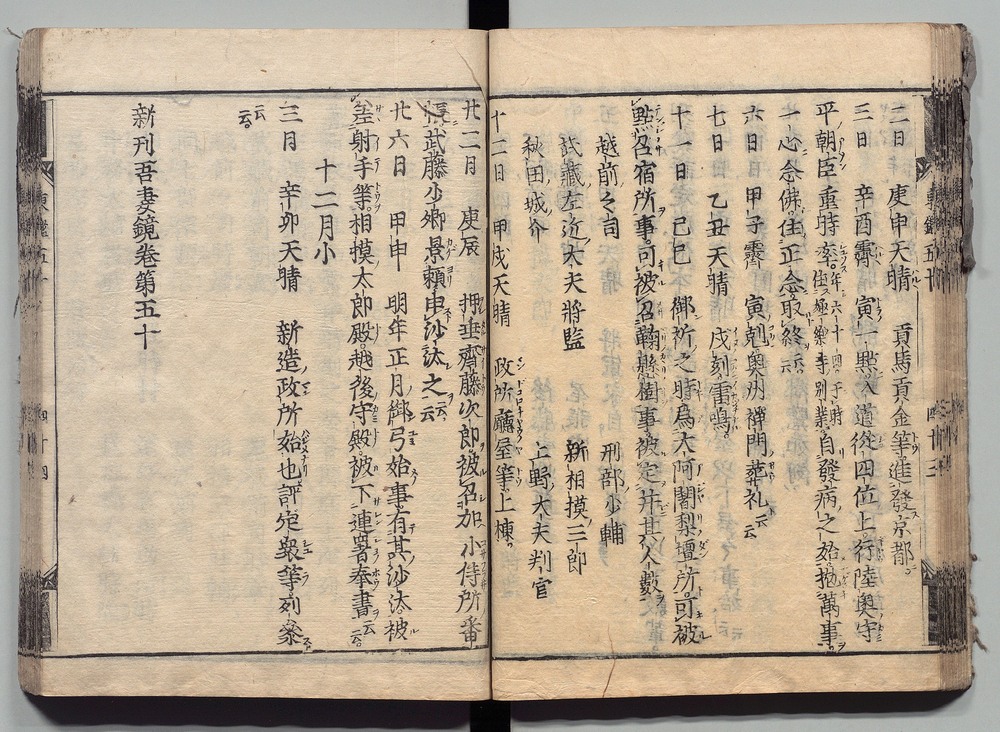 二日 庚申天晴 貢馬貢金等進發京都。
三日 辛酉霽 寅一點入道從四位上行陸奥守
平朝臣重時卒。年六十四于時住極樂寺別業。自發病之始抛萬事。
一心念佛。住正念取終云云
六日 甲子霽 寅剋奥州禪門葬礼云云
七日 乙丑天晴 戌刻雷鳴。
十一日 己巳 御祈之時爲大阿闍梨壇所。可被
點召宿所事。可被召鞠懸樹事被定并其人數。
越前々司 刑部少輔
武藏左近大夫將監 新相摸三郎
秋田城介 上野大夫判官
十二日 甲戌天晴 政所廳屋等上棟。
廿二日 庚辰 押垂齋藤次郎被召加小侍所番
帳武藤少卿景頼申沙汰之云云
廿六日 甲申 明年正月御弓始事有其沙汰被
差射手等。相摸太郎殿越後守殿被下連署奉書云云。
十二月小
三日 辛卯天晴 新造政所始也評定衆等列參
云云。
新刊吾妻鏡卷第五十